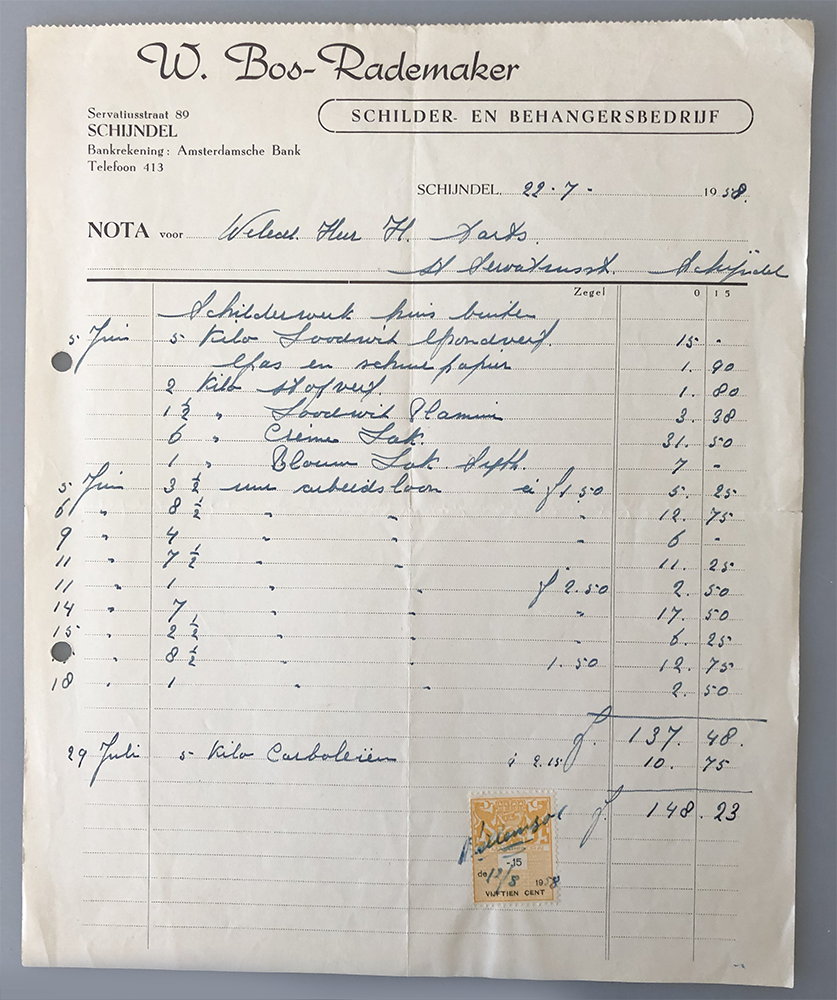 W. Bos-Rademaker
SCHILDER- EN BEHANGERSBEDRIJF
Servatiusstraat 89
SCHIJNDEL
Bankrekening: Amsterdamsche Bank
Telefoon 413
SCHIJNDEL, 22-7- 1958.
NOTA voor Weled. Heer H. Aarts.
St Servatiusst. Schijndel
Zegel 0 15
Schilderwerk huis buiten
5 Juni 5 Kilo Loodwit Grondverf. 15 -
Gfas en schuurpapier 1. 90
2 Kilo stofverf. 1. 80
1 1/2 " Loodwit Plamuur 3. 38
6 " Crème Lak. 31. 50
1 " Blauw Lak. 7 -
5 Juni 3 1/2 uur arbeidsloon à f 1.50 5. 25
6 " 8 1/2 " " " 12. 75
9 " 4 " " " 6 -
11 " 7 1/2 " " " 11. 25
11 " 1 " " f 2.50 2. 50
14 " 7 " " " 17. 50
15 " 2 1/2 " " " 6. 25
" 8 1/2 " " 1.50 12. 75
18 " 1 " " 2. 50
f. 137. 48.
29 Juli 5 Kilo Carboleïen à 2.15 10. 75
f. 148. 23
-,15
de 12/8 1958
VIJFTIEN CENT